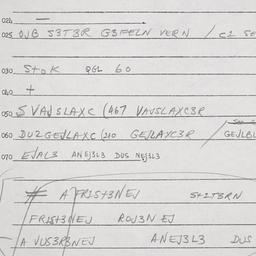 02½ —
025 OJB S3T3R G3FELN VERN / C2 SE
030 STOK QGL 60
040 +
050 SVAJSLAXC (467 VAJSLAXC3R
060 DU2GEJLAXC (210 GEJLAXC3R GEJLBL
070 EJAL3 ANEJ3L3 DUS NEJ3L3
# A FRIST3NEJ S+2TBRN
FRIST3NEJ ROJ3N EJ
A VUS3R3NEJ ANEJ3L3 DUS